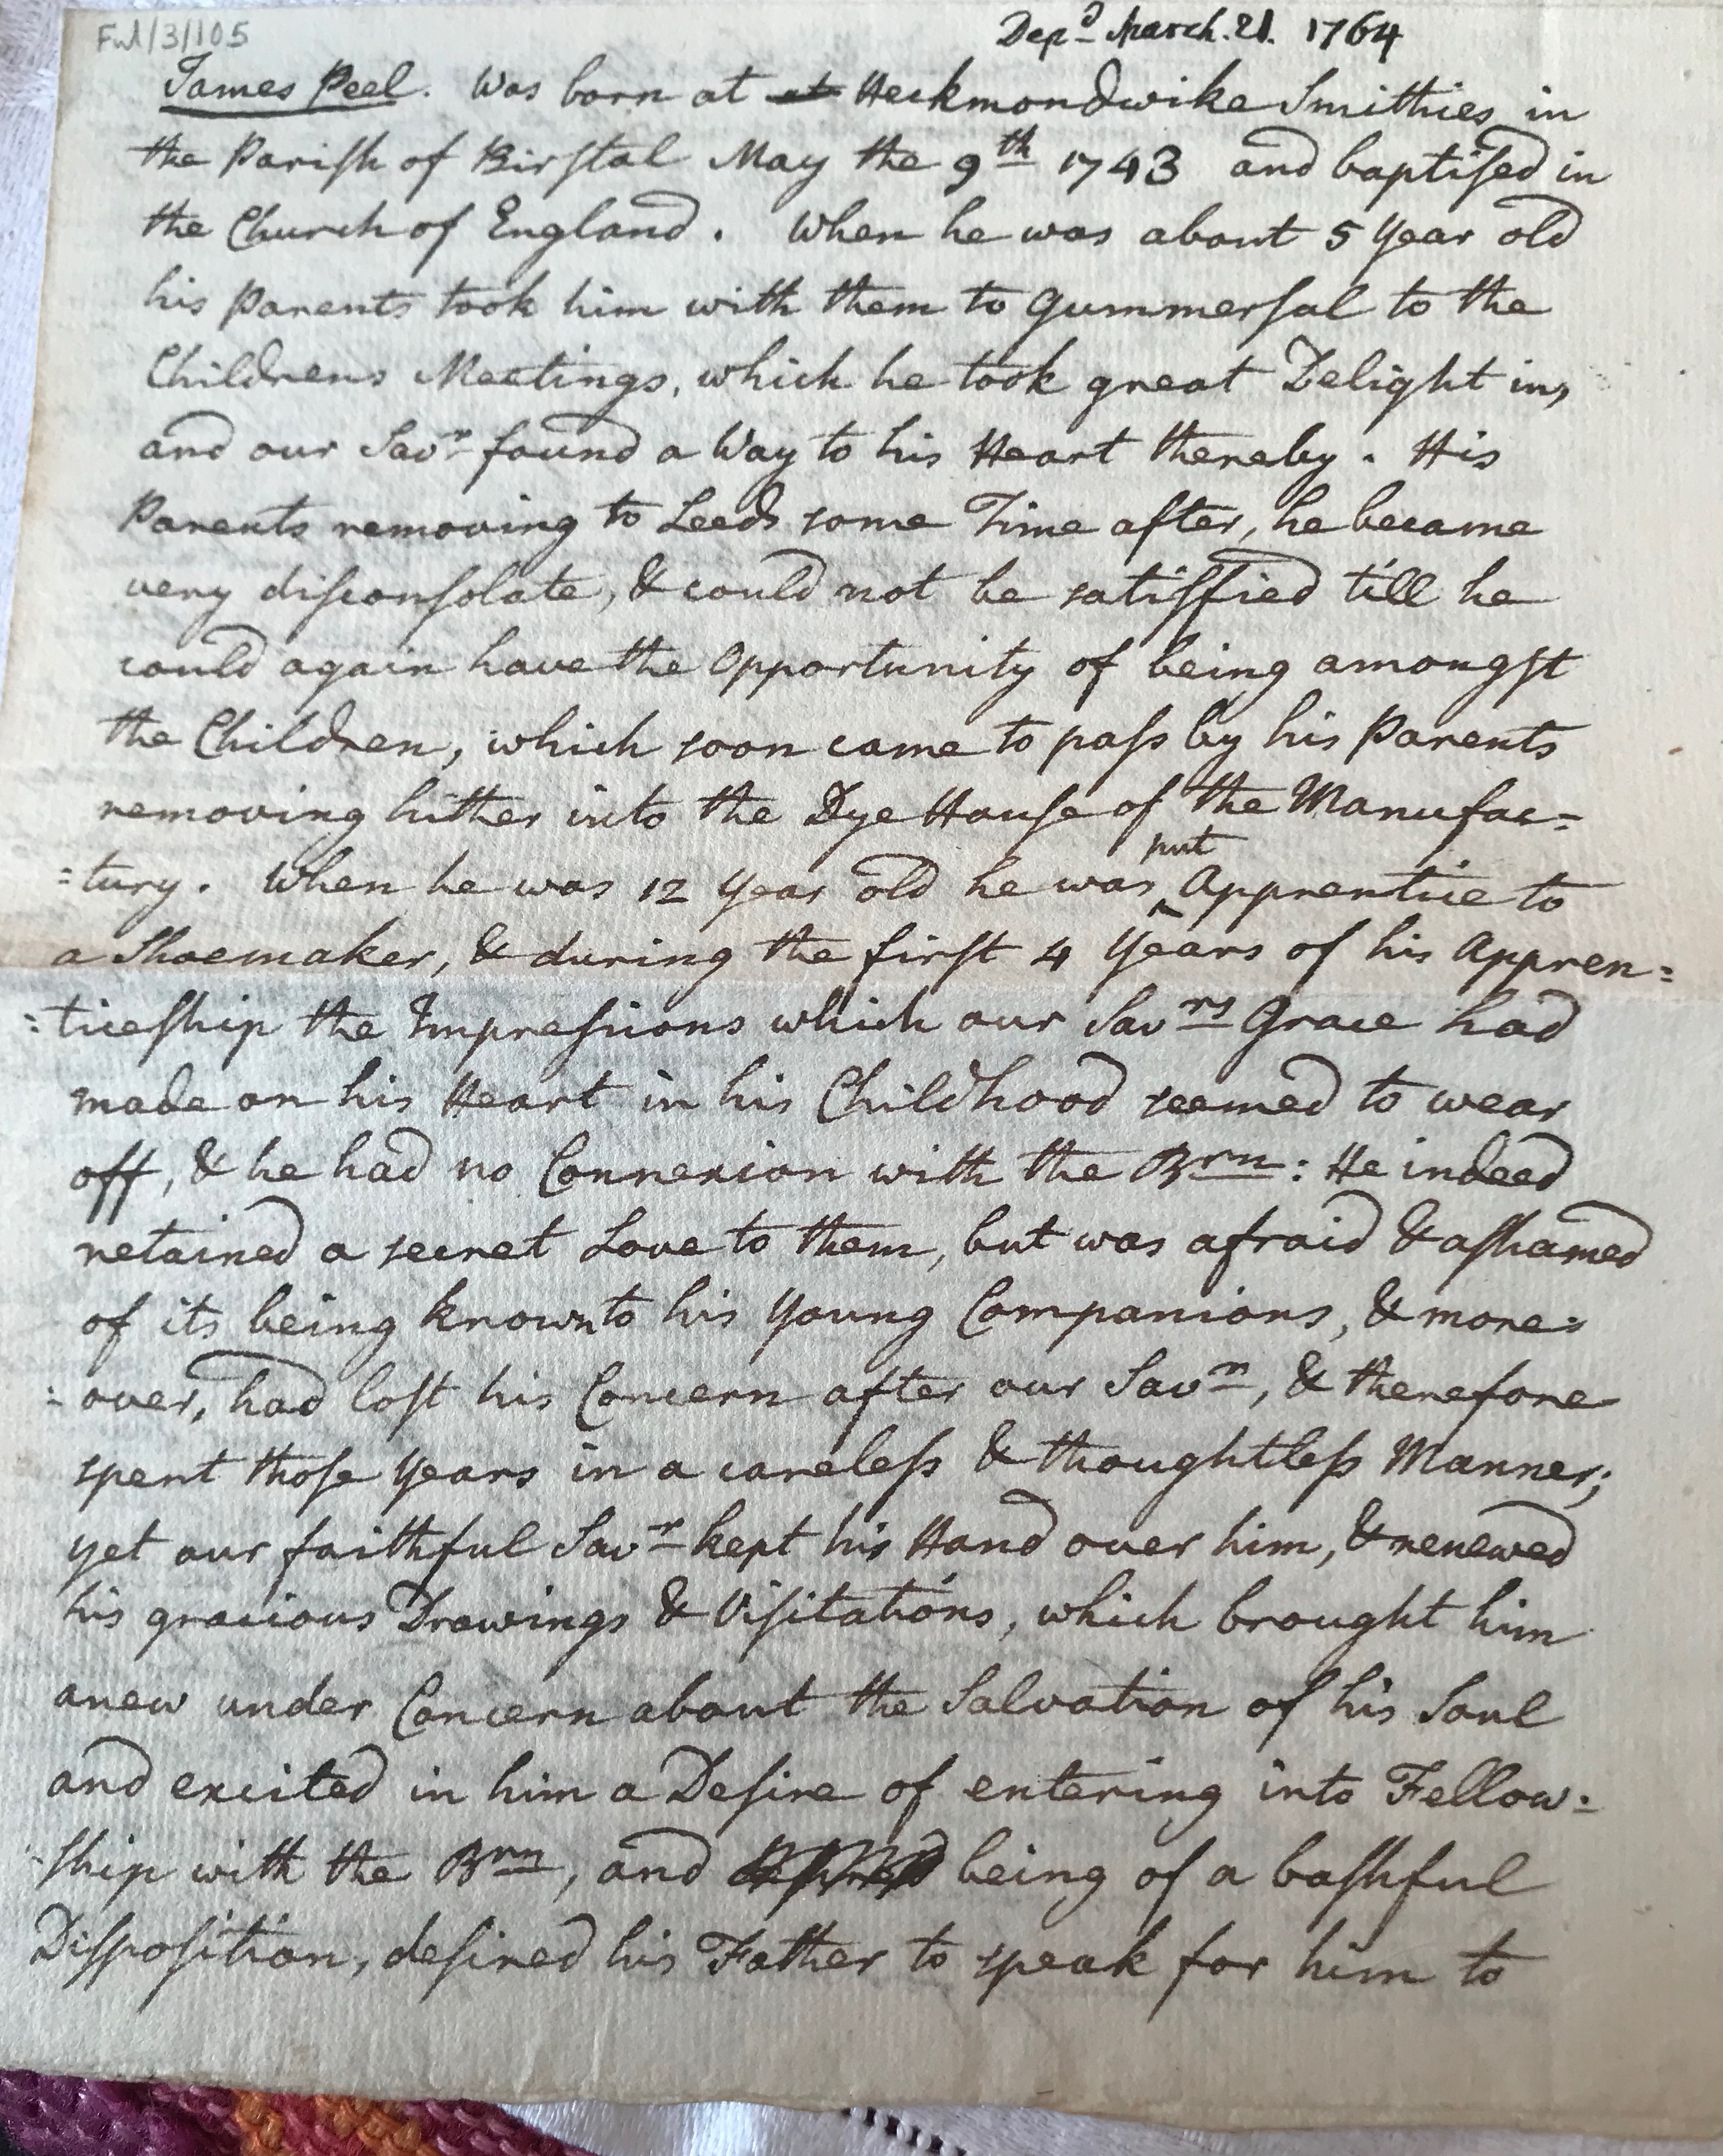 Ful/3/105
Dep.d March. 21. 1764
James Peel. Was born at at Heckmondwike Smithies in
the Pariſh of Birſtal May the 9th 1743 and baptiſed in
the Church of England. When he was about 5 Year old
his Parents took him with them to Gummerſal to the
Childrens Meetings, which he took great Delight in,
and our Savr found a Way to his Heart thereby. His
Parents removing to Leeds some Time after, he became
very diſconſolate, & could not be satiſfied till he
could again have the Opportunity of being amongſt
the Children, which soon came to paſs by his Parents
removing hither into the Dye Houſe of the Manufac=
=tury. When he was 12 Year old he was put Apprentice to
a Shoemaker, & during the firſt 4 Years of his Appren=
=ticeſhip the Impreſsions which our Savrs Grace had
made on his Heart in his Childhood seemed to wear
off, & he had no Connexion with the Brn: He indeed
retained a secret Love to them, but was afraid & aſhamed
of its being known to his Young Companions, & more=
=over, had loſt his Concern after our Savr, & therefore
spent thoſe Years in a careleſs & thoughtleſs Manner;
yet our faithful Savr kept his Hand over him, & renewed
his gracious Drawings & Viſitations, which brought him
anew under Concern about the Salvation of his Soul
and excited in him a Deſire of entering into Fellow=
=ſhip with the Brn, and being of a baſhful
Diſpoſition, deſired his Father to speak for him to